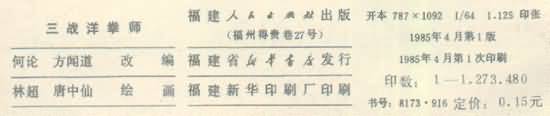 三战洋拳师
何论 方闻道 改编
林超 唐中仙 绘画
福建人民出版社出版
(福州得贵巷27号)
福建省新华书店发行
福建新华印刷厂印刷
开本 787×1092 1/64 1.125 印张
1985年4月第1版
1985年4月第1次印刷
印数：1—1,273,480
书号：8173·916 定价：0.15元